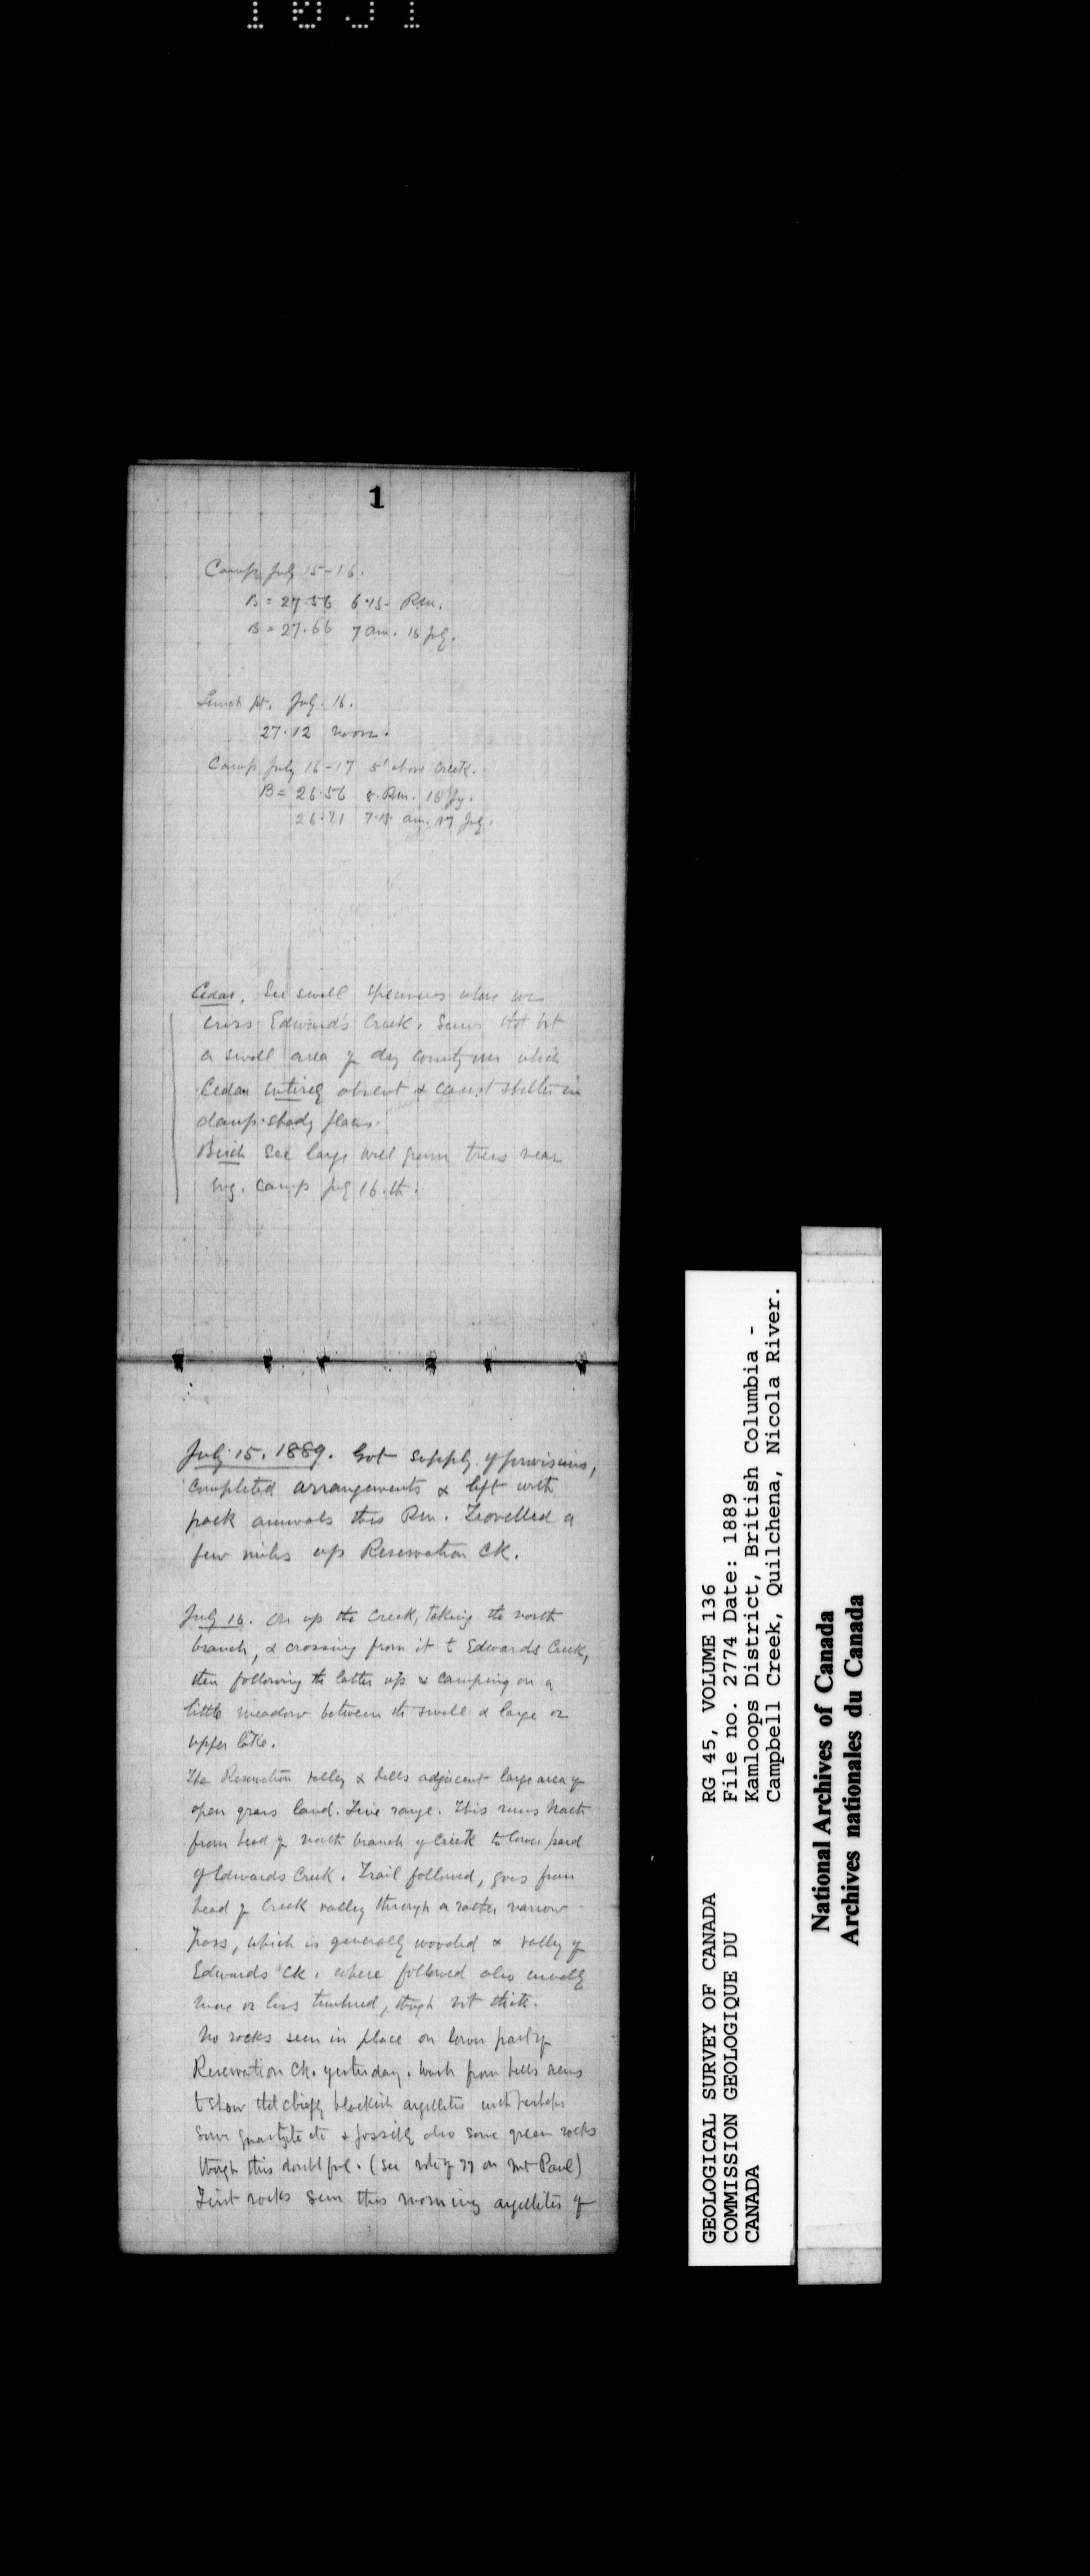 1
Camp July 15-16.
B = 27.56 6.15 P.m.
B = 27.66 7 am. 16 July.
Lunch pt. July. 16.
27.12 noon.
Camp July 16-17 5' above creek.
B = 26.56 8. P.m. 16 Jy.
26.71 7.15 am. 17 July.
Cedar. See small specimens where we
cross Edward's Creek. Seems that but
a small area of dry country over which
Cedar entirely absent & cannot shelter in
damp shady places.
Birch See large well grown trees near
evg. camp July 16.th.
July 15. 1889. Got supply of provisions,
completed arrangements & left with
pack animals this P.m. Travelled a
few miles up Reservation Ck.
July 16. On up the Creek, taking the north
branch, & crossing from it to Edwards Creek,
then following the latter up & camping on a
little meadow between the small & large or
upper lake.
The Reservation valley & hills adjacent large area of
open grass land. Fine range. This runs North
from head of north branch of Creek to lower part
of Edwards Creek. Trail followed, goes from
head of Creek valley through a rather narrow
pass, which is generally wooded & valley of
Edwards Ck. where followed also usually
more or less timbered, though not thick.
No rocks seen in place on lower part of
Reservation Ck. yesterday. Wash from hills seems
to show that chiefly blackish argillites with perhaps
some quartzite etc & possibly also some green rocks
though this doubtful. (See note of 77 on Mt Paul)
First rocks seen this morning argillites of
GEOLOGICAL SURVEY OF CANADA
COMMISSION GEOLOGIQUE DU
CANADA
RG 45, VOLUME 136
File no. 2774 Date: 1889
Kamloops District, British Columbia -
Campbell Creek, Quilchena, Nicola River.
National Archives of Canada
Archives nationales du Canada